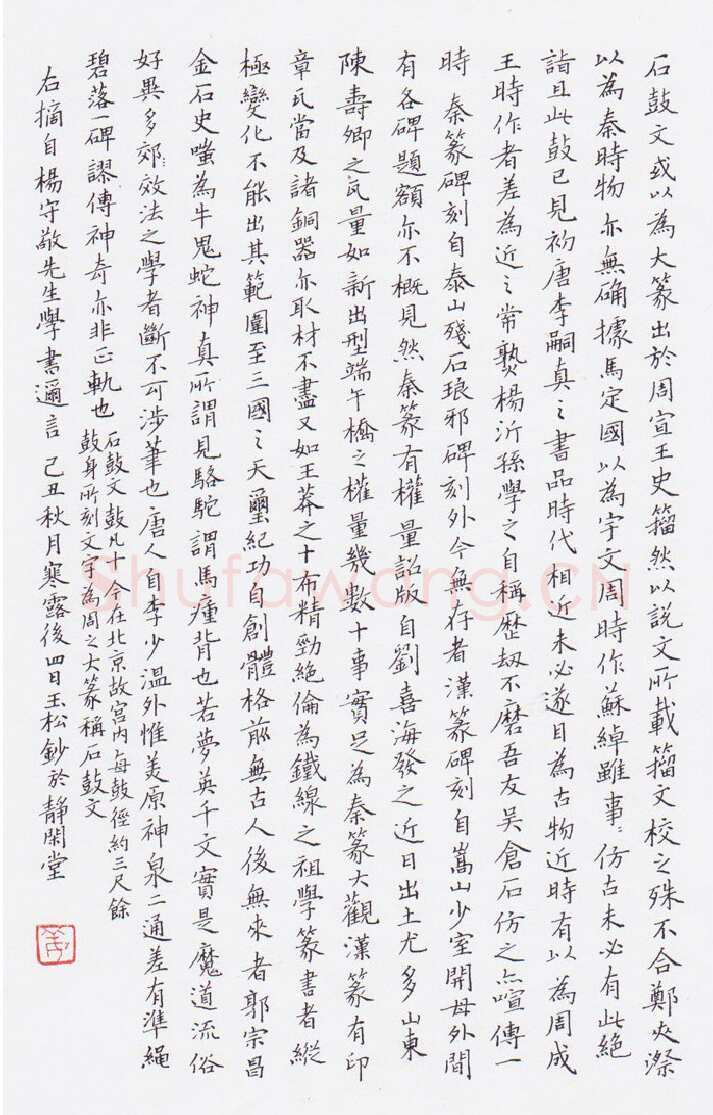 石鼓文或以為大篆出於周宣王史籀然以說文所載籀文校之殊不合鄭夾漈
以為秦時物亦無确據馬定國以為宇文周時作蘇綽雖事〻仿古未必有此絕
詣且此鼓已見初唐李嗣真之書品時代相近未必遂目為古物近時有以為周成
王時作者差為近之常熟楊沂孫學之自稱歷劫不磨吾友吴倉石仿之亦喧傳一
時秦篆碑刻自泰山殘石琅邪碑刻外今無存者漢篆碑刻自嵩山少室開母外間
有各碑題額亦不概見然秦篆有權量詔版自劉喜海發之近日出土尤多山東
陳壽卿之瓦量如新出型端午橋之權量幾數十事實足為秦篆大觀漢篆有印
章瓦當及諸銅器亦取材不盡又如王莽之十布精勁絕倫為鐵線之祖學篆書者縱
極變化不能出其範圍至三國之天璽紀功自創體格前無古人後無來者郭宗昌
金石史嗤為牛鬼蛇神真所謂見駱駝謂馬瘇背也若夢英千文實是魔道流俗
好異多郊〻效法之學者斷不可涉筆也唐人自李少溫外惟美原神泉二通差有準繩
碧落一碑謬傳神奇亦非正軌也
石鼓文鼓凡十今在北京故宮內每鼓徑約三尺餘
鼓身所刻文字為周之大篆稱石鼓文
右摘自楊守敬先生學書邇言己丑秋月寒露後四日玉松鈔於靜閑堂
Shufawang.CN